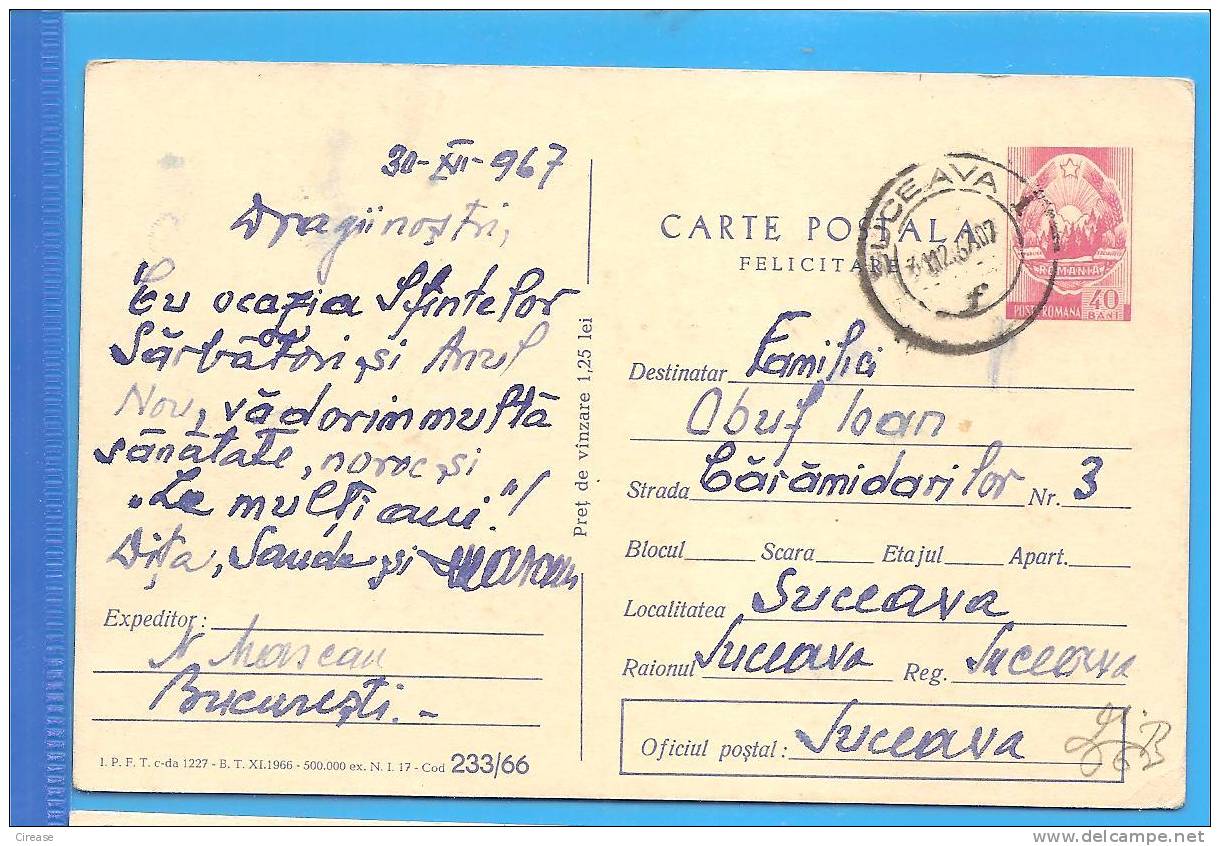 30-XII-967
Dragii noștri,
Cu ocazia Sfintelor
Sărbători și Anul
Nou, vă dorim multă
sănătate, noroc și
„La mulți ani!"
Dița, Sanda și
Expeditor:
N
București.-
I. P. F. T. c-da 1227 - B. T. XI.1966 - 500.000 ex. N. I. 17 - Cod 233/66
Preț de vînzare 1,25 lei
CARTE POȘTALĂ
FELICITARE
SUCEAVA
ROMANIA
POSTA ROMANA 40 BANI
Destinatar Familiei
Obuf Ioan
Strada Cărămidarilor Nr. 3
Blocul Scara Etajul Apart.
Localitatea Suceava
Raionul Suceava Reg. Suceava
Oficiul poștal: Suceava
Cirease
www.delcampe.net